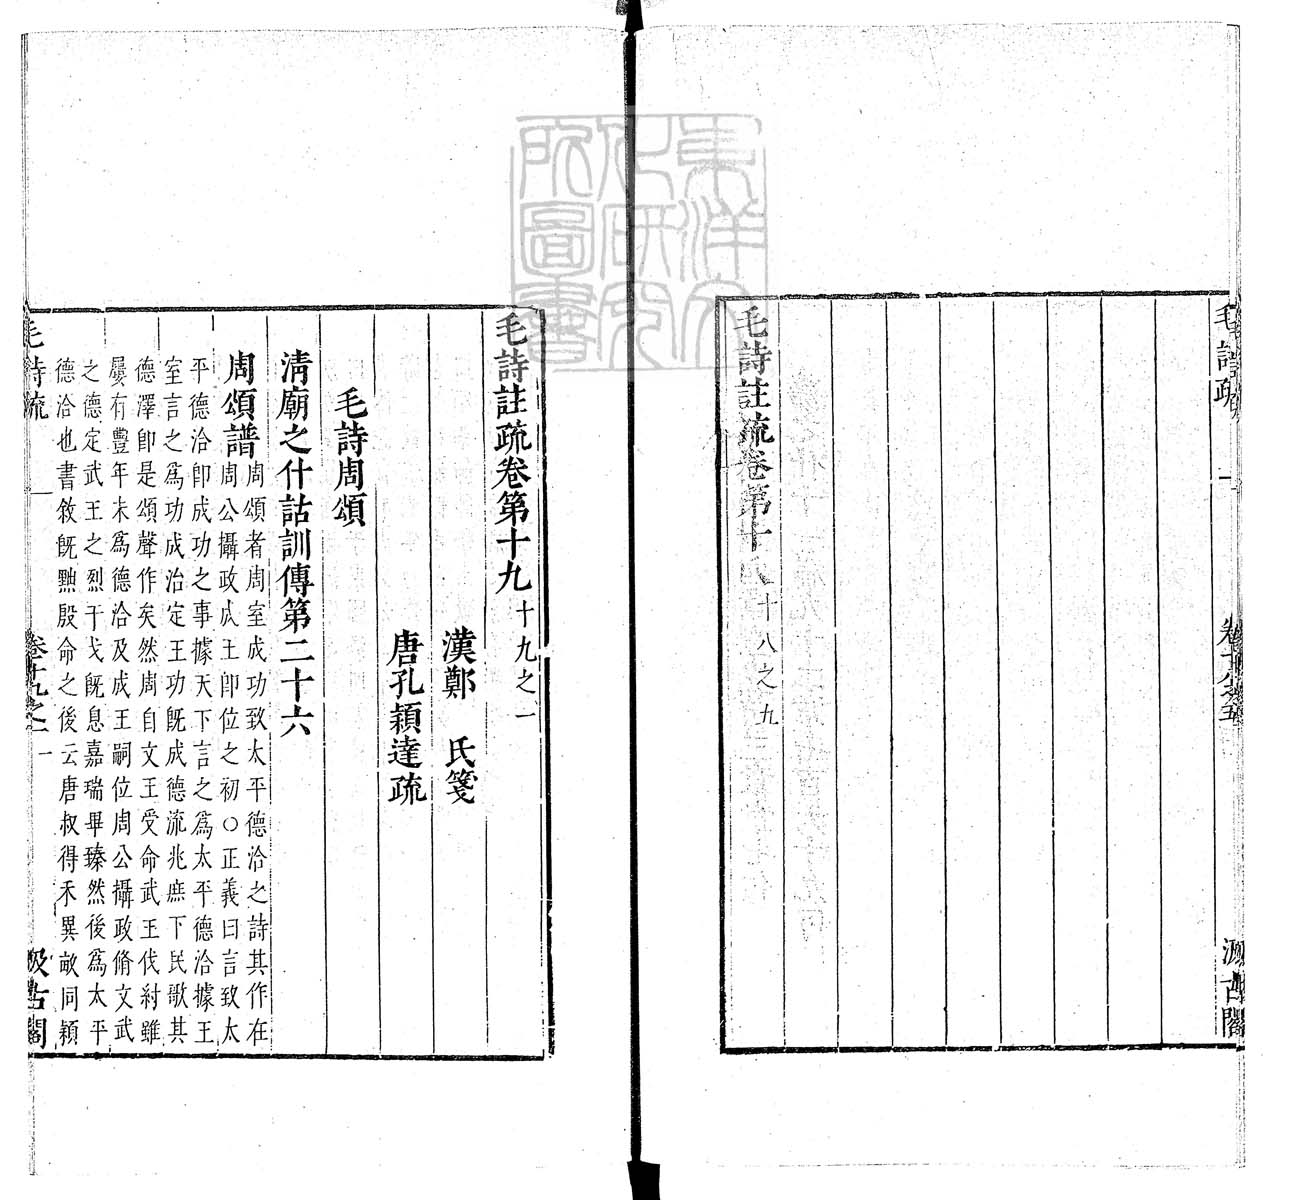 毛詩疏
毛詩註疏卷第十 十八之九
汲古閣
東洋文化研究所圖書
毛詩註疏卷第十九 十九之一
漢鄭 氏箋
唐孔穎達疏
毛詩周頌
清廟之什詁訓傳第二十六
周頌譜 周頌者周室成功致太平德洽之詩其作在
周公攝政成王卽位之初○正義曰言致太
平德洽卽成功之事據天下言之爲太平德洽據王
室言之爲功成治定王功旣成德流兆庶下民歌其
德澤卽是頌聲作矣然周自文王受命武王伐紂雖
屢有豐年未爲德洽及成王嗣位周公攝政脩文武
之德定武王之烈干戈旣息嘉瑞畢臻然後爲太平
德洽也書敘旣黜殷命之後云唐叔得禾異畝同穎
毛詩疏
卷十九之一
一
汲古閣